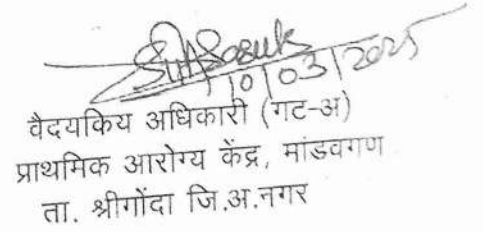 10/03/2025
वैदयकिय अधिकारी (गट-अ)
प्राथमिक आरोग्य केंद्र, मांडवगण
ता. श्रीगोंदा जि.अ.नगर